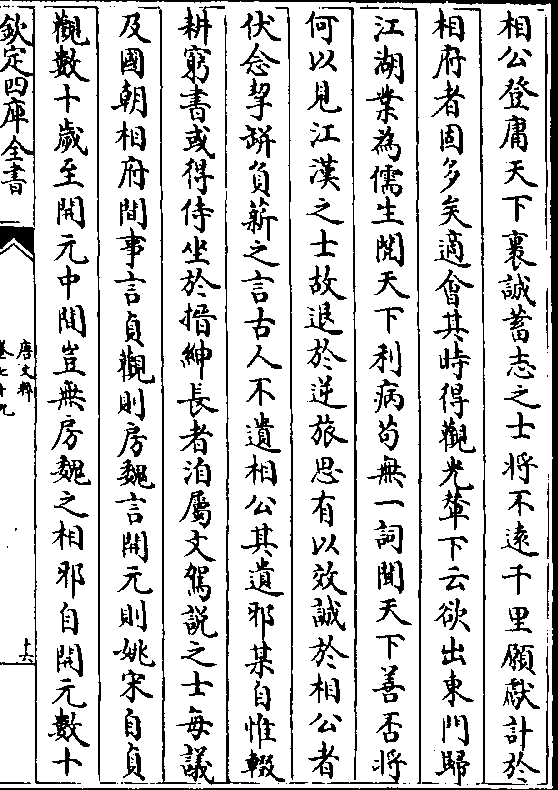 相公登庸天下裹誠蓄志之士將不遠千里願獻計於
相府者固多矣適會其時得觀光輦下云欲出東門歸
江湖業為儒生閱天下利病苟無一詞聞天下善否將
何以見江漢之士故退於逆旅思有以效誠於相公者
伏念挈缾負薪之言古人不遺相公其遺邪某自惟輟
耕窮書或得侍坐於搢紳長者洎屬文駕説之士每議
及國朝相府間事言貞觀則房魏言開元則姚宋自貞
觀數十歲至開元中間豈無房魏之相邪自開元數十
欽定四庫全書
唐文粹
卷七十九
十六